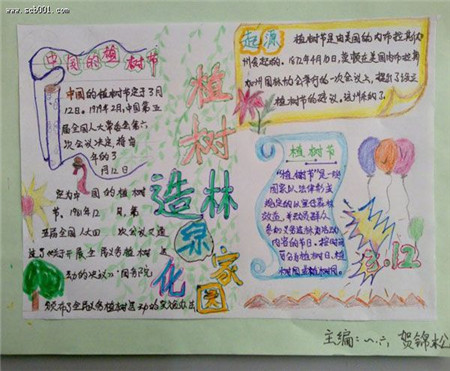 www.sc6001.com
中国的植树节
中国的植树节定于3月
12日。1979年2月,中国第五
届全国人大常委会第六
次会议决定,将每
年的3
月12日
定为中国的植树
节。1981年12月,第
五届全国人大四次会议通
过了《关于开展全民义务植树运
动的决议》。国务院
颁布了全民义务植树运动的实施办法
植树
造林
绿化
家园
起源
植树节是由美国的内布拉斯加
州发起的。1872年4月10日,莫顿在美国内布拉斯
加州园林协会举行的一次会议上,提出了设立
植树节的建议。这州采纳了
植树节
“植树节”是一些
国家以法律形式
规定的以宣传森林
效益,并动员群众
参加义务造林为活动
内容的节日。按时间
可分为植树日、植
树周或植树月。
3.12
主编:一、六 贺锦松